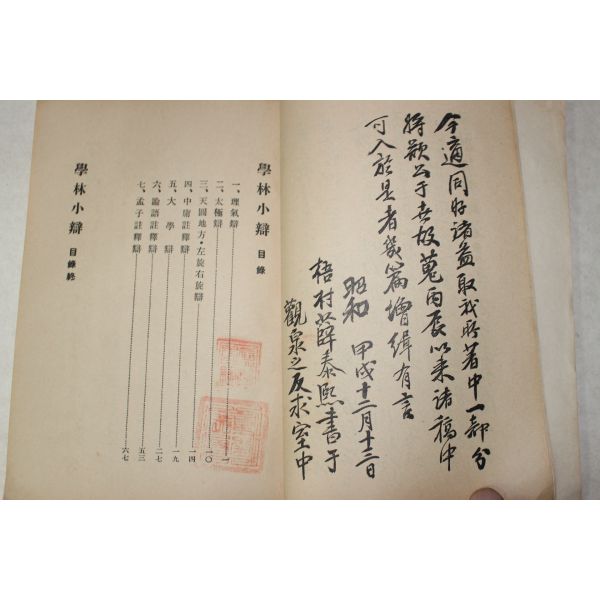 今適同好諸益取我所著中一部分
將欲公于世故蒐丙辰以來諸稿中
可入於是者幾篇增緝有言
昭和 甲戌十二月十三日
梧村薛泰熙書于
觀泉之反求室中
學林小辯 目錄
一、理氣辯 一
二、太極辯 一〇
三、天圓地方・左旋右旋辯 一四
四、中庸註釋辯 一九
五、大學辯 二七
六、論語註釋辯 五三
七、孟子註釋辯 六七
學林小辯 目錄終